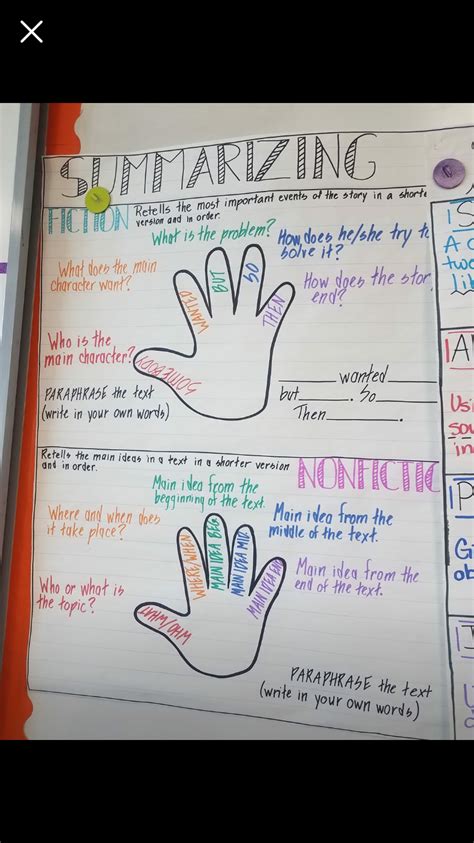 SUMMARIZING
FICTION
Retells the most important events of the story in a shorte
version and in order.
What is the problem?
How does he/she try t
solve it?
What does the main
character want?
How does the stor
end?
Who is the
main character?
SOMEBODY
WANTED
BUT
SO
THEN
PARAPHRASE the text
(write in your own words)
______ wanted______
but______. So______
Then______.
Retells the main ideas in a text in a shorter version
and in order.
NONFICTIC
Main idea from the
begginning of the text.
Where and when does
it take place?
Main idea from the
middle of the text.
Who or what is
the topic?
Main idea from the
end of the text.
WHO/WHAT
WHERE/WHEN
MAIN IDEA BEG
MAIN IDEA MID
MAIN IDEA END
PARAPHRASE the text
(write in your own words)
S
A c
two
lib
A
Usi
sou
in
P
Gi
ob